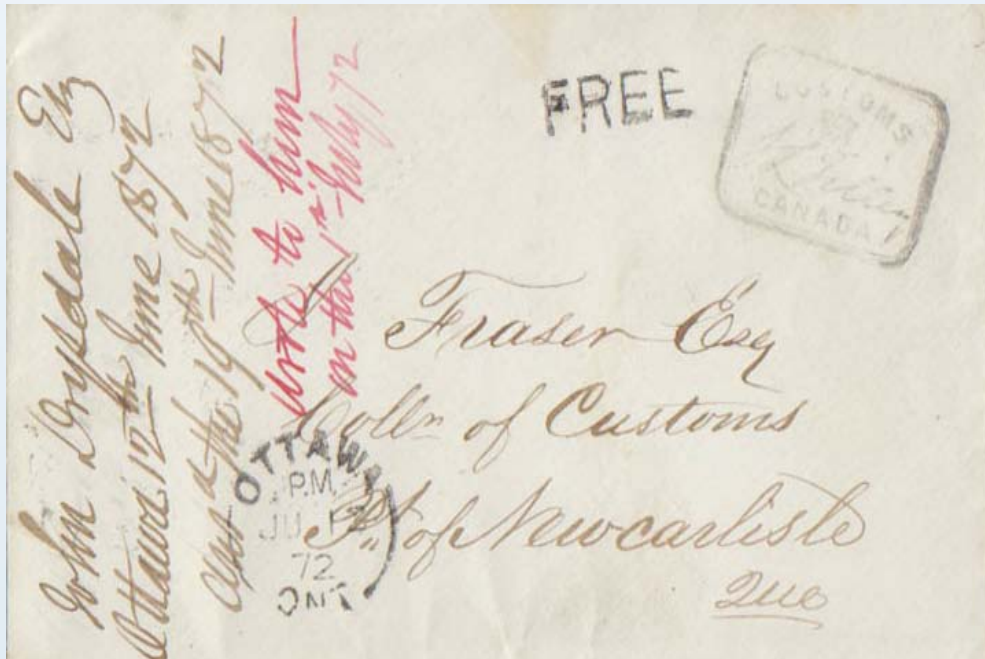 John Drysdale Esq
Ottawa 12th June 1872
Ans'd the 19th June 1872
wrote to him
on the 1st July 72
FREE
CUSTOMS
CANADA
Fraser Esq
Collr of Customs
Pt of Newcarlisle
Que
OTTAWA
P.M.
JU 12
72
ONT